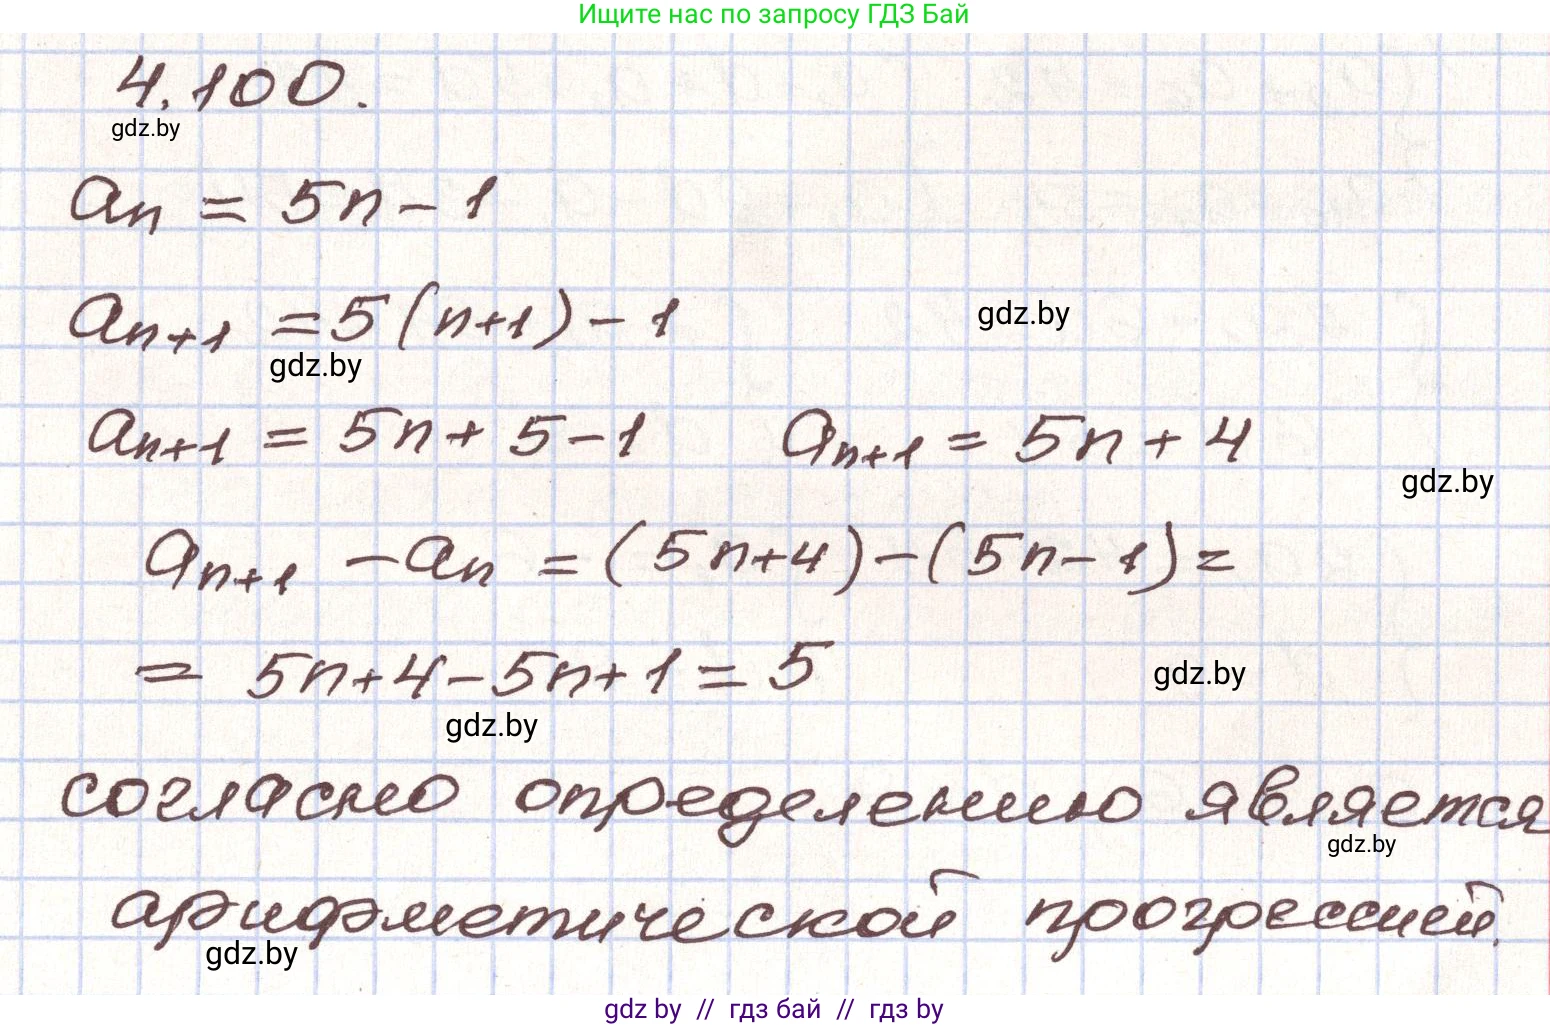 Ищите нас по запросу ГДЗ Бай
4.100.
gdz.by
aₙ = 5n - 1
aₙ₊₁ = 5(n+1) - 1
gdz.by
gdz.by
aₙ₊₁ = 5n + 5 - 1 aₙ₊₁ = 5n + 4
gdz.by
aₙ₊₁ - aₙ = (5n+4) - (5n - 1) =
= 5n+4 - 5n+1 = 5
gdz.by
gdz.by
согласно определению является
gdz.by
арифметической прогрессией.
gdz.by
gdz by // гдз бай // гдз by